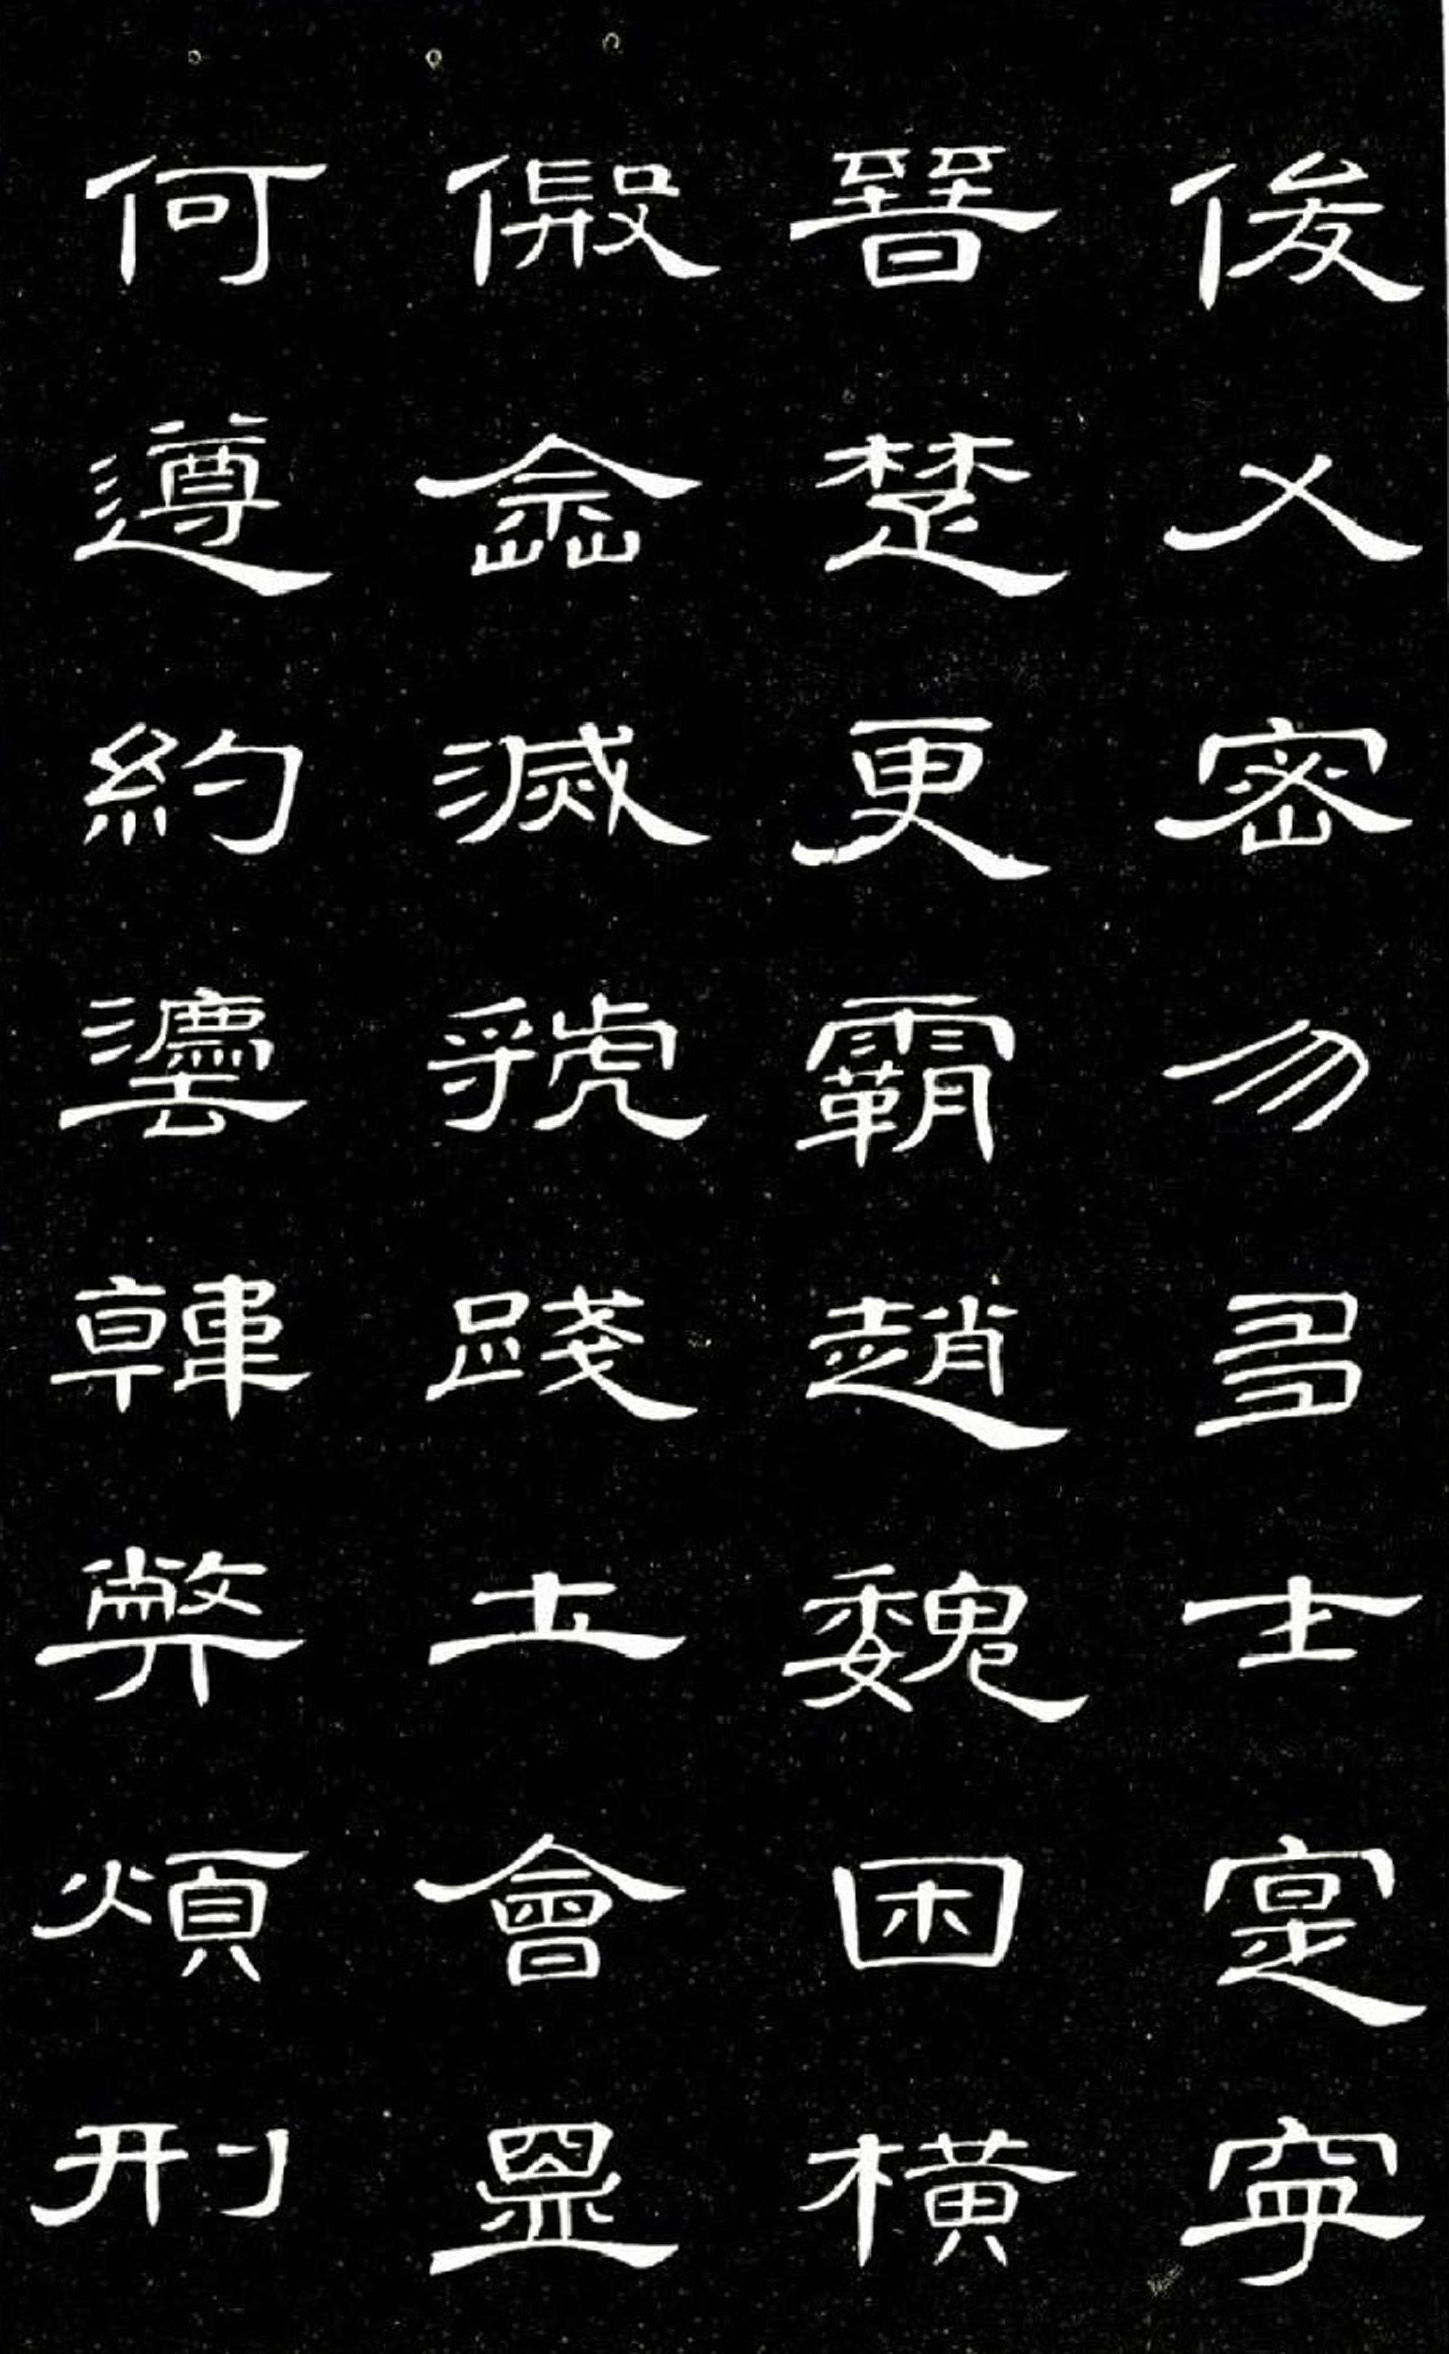 俊乂密勿多士寔寧
晉楚更霸趙魏困橫
假途滅虢踐土會盟
何遵約法韓弊煩刑